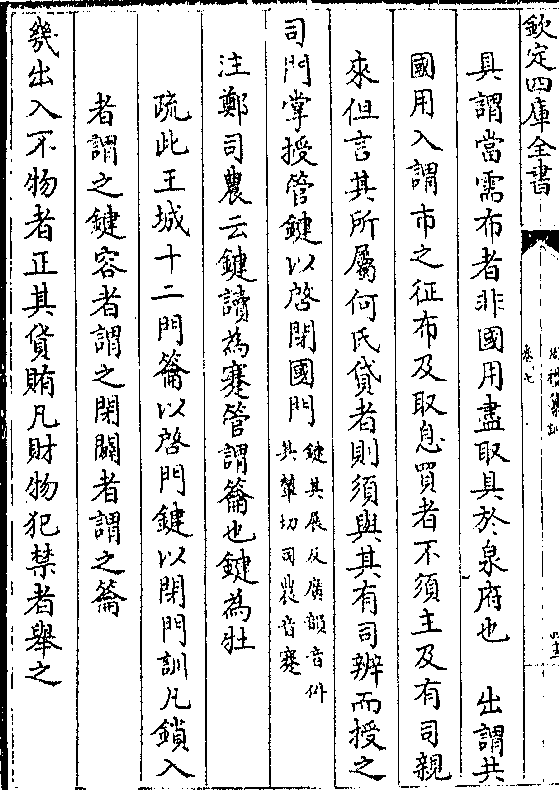 欽定四庫全書
卷七
具謂當需布者非國用盡取具於泉府也　出謂共
國用入謂市之征布及取息買者不須主及有司親
來但言其所屬何氏貸者則須與其有司辨而授之
司門掌授管鍵以啓閉國門
鍵其展反廣韻音件
其輦切司農音蹇
注鄭司農云鍵讀為蹇管謂籥也鍵為牡
疏此王城十二門籥以啓門鍵以閉門訓凡鎖入
者謂之鍵容者謂之閉關者謂之籥
幾出入不物者正其貨賄凡財物犯禁者舉之